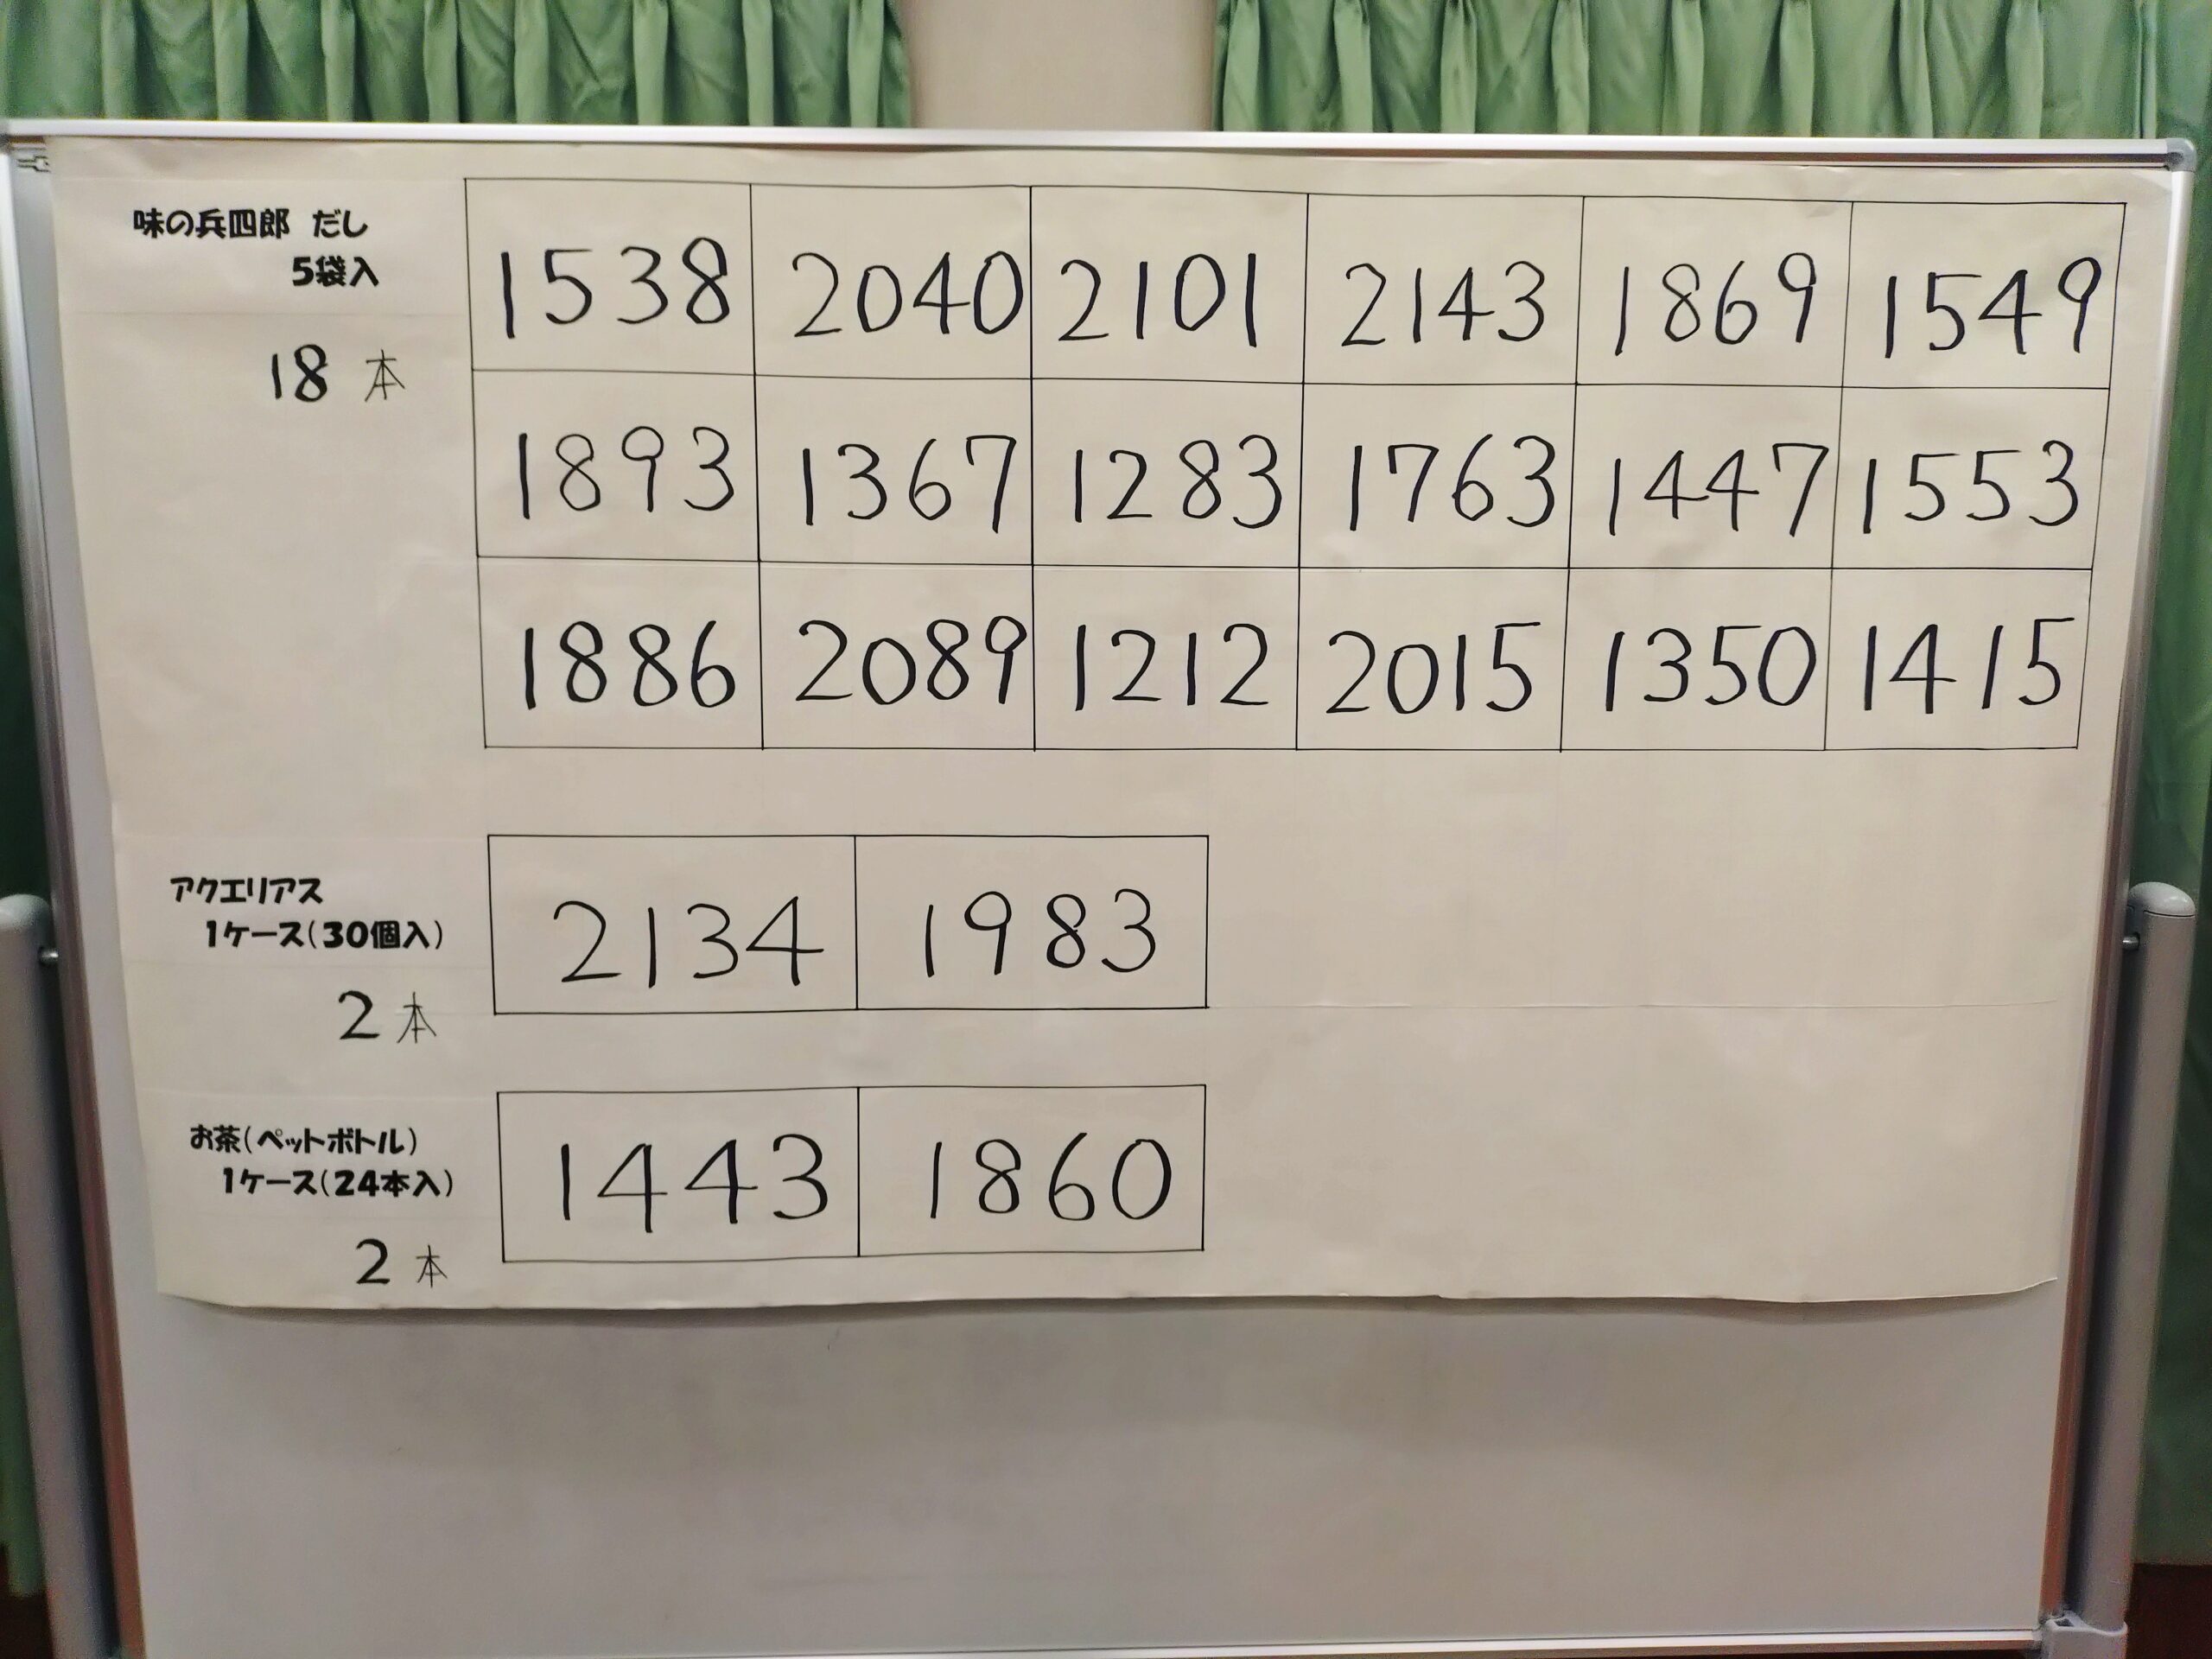 味の兵四郎 だし
5袋入
18 本
1538 2040 2101 2143 1869 1549
1893 1367 1283 1763 1447 1553
1886 2089 1212 2015 1350 1415
アクエリアス
1ケース(30個入)
2 本
2134 1983
お茶(ペットボトル)
1ケース(24本入)
2 本
1443 1860